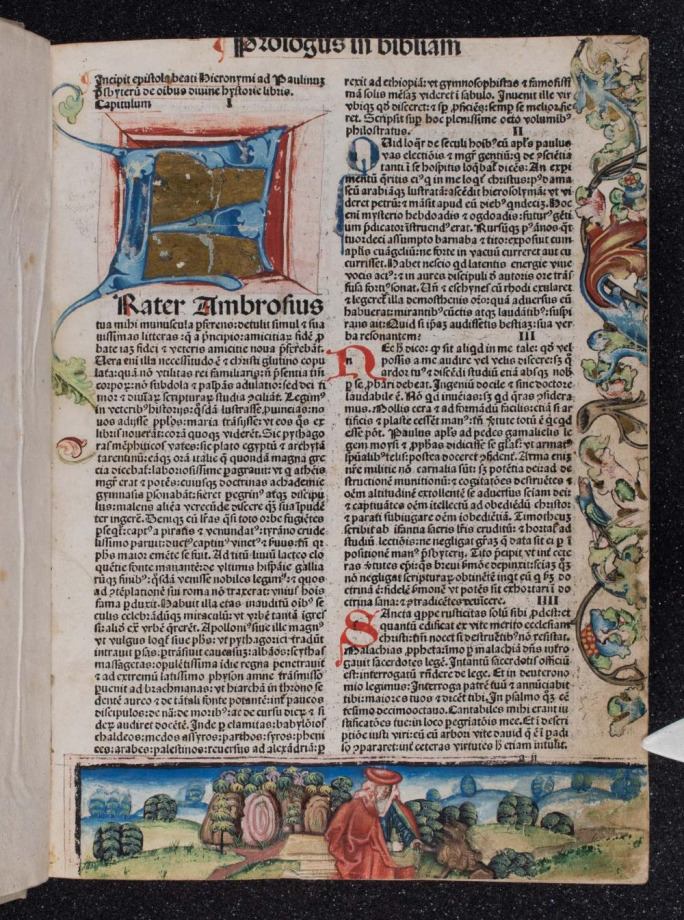 Prologus in bibliam
Incipit epistola beati Hieronymi ad Paulinuz
p̄sbyterū de oibus diuine hystorie libris.
Capitulum I
FRater Ambrosius
tua mihi munuscula pferens: detulit simul ⁊ sua
uissimas litteras: q̄ a pncipio: amicitiaꝝ fidē ꝓ
bate iaȝ fidei ⁊ veteris amicitie noua pferebāt.
Uera eni illa necessitudo ē ⁊ christi glutino copu
lata: quā nō vtilitas rei familiaris: nō pñtia tm̄
corpoꝝ: nō subdola ⁊ palpās adulatio: sed dei ti
mor ⁊ diuinaꝝ scripturaꝝ studia ꝯciliāt. Legim⁹
in veterib⁹ historijs: qsdā lustrasse ꝓuincias: no
uos adijsse pplos: maria trāsisse: vt eos qs ex
libris nouerāt: corā quoqꝫ viderēt. Sic pythago
ras memphiticos vates: sic plato egyptū ⁊ archytā
tarentinū: eāqꝫ orā italie q̄ quondā magna gre
cia dicebat̄: laboriosissime pagrauit: vt q athenis
mgr̄ erat ⁊ potēs: cuiusqꝫ doctrinas achademie
gymnasia psonabāt: fieret pegrin⁹ atqꝫ discipu
lus: malens aliena verecūde discere qꝫ sua īpudē
ter ingerē. Deniqꝫ cū lr̄as qsi toto orbe fugiētes
pseqt̄: capt⁹ a piratis ⁊ venundat⁹: tyrāno crude
lissimo paruit: duct⁹ captiu⁹ vinct⁹ ⁊ seruus: tn̄ qꝛ
phs maior emēte se fuit. Ad titū liuiū lacteo elo
quētie fonte manantē: de vltimis hispanie gallia
rūqꝫ finib⁹: qsdā venisse nobiles legim⁹: ⁊ quos
ad ꝯtēplationē sui roma nō traxerat: vnius hois
fama pduxit. Habuit illa etas inauditū oib⁹ se
culis celebrādūqꝫ miraculū: vt vrbē tantā igres
si: aliō ex vrbe q̄rerēt. Apolloni⁹ siue ille magus
vt vulgus loqt̄ siue phs: vt pythagorici tradūt
intrauit psas: ptrāsiuit caucasum: albāos: scythas
massagetas: opulētissima idie regna penetrauit
⁊ ad extremū latissimo physon amne trāsmisso
puenit ad brachmanas: vt hiarchā in throno se
dentē aureo ⁊ de tātali fonte potantē: inf paucos
discipulos: de nā: de morib⁹: ac de cursu dierꝝ ⁊ si
deꝝ audiret docētē. Inde p elamitas: babylōios
chaldeos: medos assyros: parthos: syros: pheni
ces: arabes: palestinos: reuersus ad alexādriā: p
rexit ad ethiopiā: vt gymnosophistas ⁊ famosissi
mā solis mēsaȝ videret i sabulo. Inuenit ille vir
vbiqꝫ qd disceret: ⁊ sp ꝓficiēs: semp se melior fie
ret. Scripsit sup hoc plenissime octo volumib⁹
philostratus. II
QUid loqr̄ de seculi hoib⁹: cū apl̄s paulus
vas electiōis ⁊ mgr̄ gentiū: q de ꝯsciētia
tanti i se hospitis loqbat̄ dicēs: An expi
mentū q̄ritis ei⁹ q in me loqt̄ christus: p⁹ dama
scū arabiāqꝫ lustratā: ascēdit hierosolymā: vt vi
deret petrū: ⁊ māsit apud eū dieb⁹ qndeciȝ. Hoc
eni mysterio hebdoadis ⁊ ogdoadis: futur⁹ gēti
um pdicator īstruend⁹ erat. Rursūqꝫ p⁹ ānos qt̄
tuordeci assumpto barnaba ⁊ tito: exposuit cum
aplis euāgeliū: ne forte in vacuū curreret aut cu
currisset. Habet nescio qd latentis energie viue
vocis act⁹: ⁊ in aures discipuli d̄ autoris ore trās
fusa forti⁹ sonat. Un̄ ⁊ eschynes cū rhodi exularet
⁊ legeret̄ illa demosthenis oro: quā aduersus eū
habuerat: mirantib⁹ cūctis atqꝫ laudātib⁹: suspi
rans ait: Quid si ipȝ audissetis bestiaȝ: sua ver
ba resonantem? III
NEc h̄ dico: qꝛ sit aliqd in me tale: qd̄ vel
possis a me audire vel velis discere: sȝ q
ardor tu⁹ ⁊ discēdi studiū etiā absqꝫ nob
p se ꝓbari debeat. Ingeniū docile ⁊ sine doctore
laudabile ē. Nō qd inuēias: sȝ qd q̄ras ꝯsidera
mus. Mollis cera ⁊ ad formādū facilis: etiā si ar
tificis ⁊ plaste cessēt man⁹: tn̄ v̄tute totū ē qcqd
esse pōt. Paulus apl̄s ad pedes gamalielis le
gem moysi ⁊ ꝓphas didicisse se gl̄iat̄: vt armat⁹
spūalib⁹ telis: postea doceret ꝯfidenter. Arma eniȝ
nr̄e militie nō carnalia sūt: sȝ potētia deo: ad de
structionē munitionū: ⁊ cogitatōes destruētes ⁊
oēm altitudinē extollentē se aduersus sciam dei:
⁊ captiuātes oēm itellectū ad obediēdū christo:
⁊ parati subiugare oēm iobedientiā. Timotheuȝ
scribit ab infantia sacris lr̄is eruditū: ⁊ hortat̄ ad
studiū lectiōis: ne negligat gr̄aȝ q̄ data sit ei p i
positionē man⁹ p̄sbyterij. Tito p̄cipit vt int̄ cete
ras v̄tutes epi: qs breui ẜmōe depinxit: sciaȝ qꝫ
nō negligat scripturaꝝ: obtinētē inqt eū q b̄ȝ do
ctrinā ē: fidelē ẜmonē vt potēs sit exhortari i do
ctrina sana: ⁊ ꝯtradicētes reuincere. IIII
SAncta qppe rusticitas solū sibi pdest: et
quantū edificat ex vite merito ecclesiam
christi: tm̄ nocet si destruētib⁹ nō resistat.
Malachias ꝓpheta: imo p malachiā dn̄s: intro
gauit sacerdotes legē. Intantū sacerdotis officiū
est: interrogatū rn̄dere de lege. Et in deuterono
mio legimus: Interroga patrē tuū ⁊ annūciabit
tibi: maiores tuos ⁊ dicēt tibi. In psalmo qꝫ cē
tesimo decimooctauo. Cantabiles mihi erant iu
stificatōes tue: in loco pegrinatōis mee. Et i descri
ptiōe iusti viri: cū eū arbori vite dauid q̄ ē i padi
so ꝯpararet: int̄ ceteras virtutes h̄ etiam intulit.
a ij